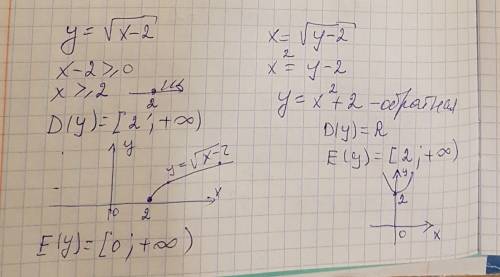 y = √x-2
x-2 ⩾ 0
x ⩾ 2
2
D(y) = [2; +∞)
y
y = √x-2
x
0
2
E(y) = [0; +∞)
x = √y-2
x² = y-2
y = x² + 2 - обратная
D(y) = R
E(y) = [2; +∞)
y
2
0
x